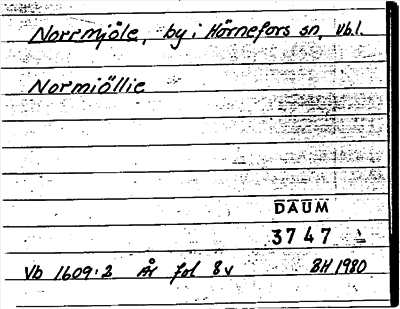 Norrmjöle, by i Hörnefors sn, Vb.l.
Normiöllie
DAUM
3747
Vb 1609:2 År fol 8v BH 1980